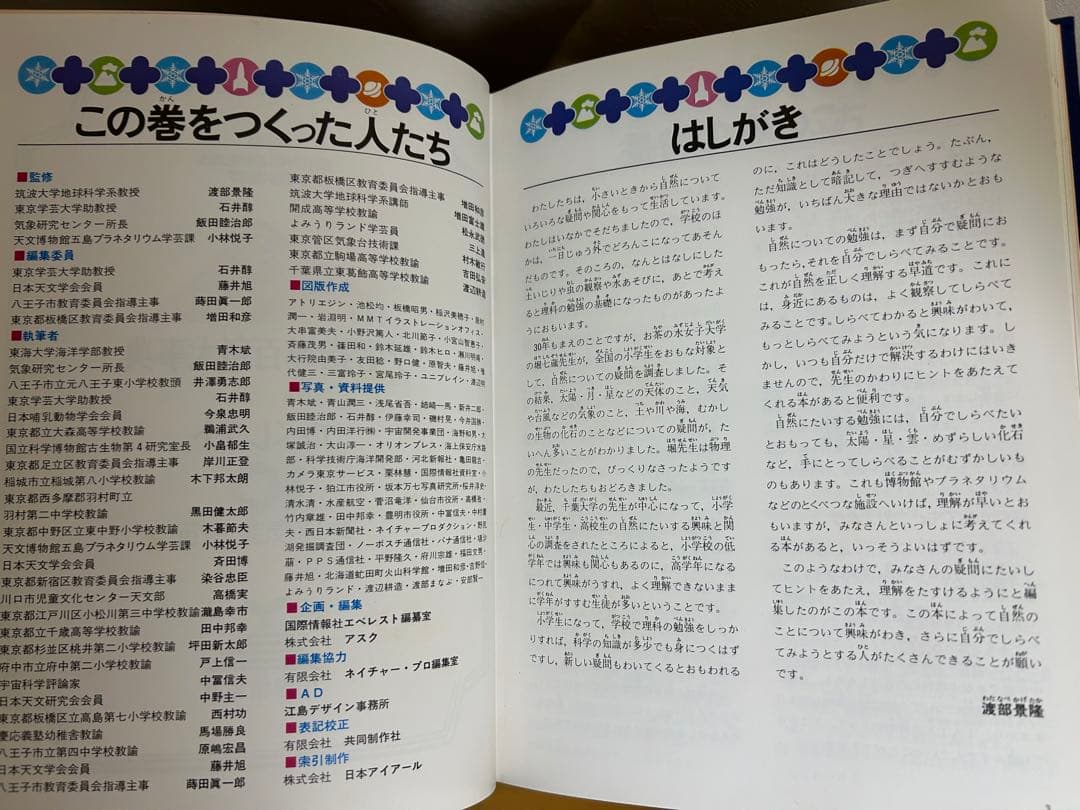 この巻をつくった人たち
■監修
筑波大学地球科学系教授 渡部景隆
東京学芸大学助教授 石井醇
気象研究センター所長 飯田睦治郎
天文博物館五島プラネタリウム学芸課 小林悦子
■編集委員
東京学芸大学助教授 石井醇
日本天文学会会員 藤井旭
八王子市教育委員会指導主事 蒔田眞一郎
東京都板橋区教育委員会指導主事 増田和彦
■執筆者
東海大学海洋学部教授 青木斌
気象研究センター所長 飯田睦治郎
八王子市立元八王子東小学校教頭 井澤勇志郎
東京学芸大学助教授 石井醇
日本哺乳動物学会会員 今泉忠明
東京都立大森高等学校教諭 鵜浦武久
国立科学博物館古生物第4研究室長 小畠郁生
東京都足立区教育委員会指導主事 岸川正登
稲城市立稲城第八小学校教諭 木下邦太朗
東京都西多摩郡羽村町立
羽村第二中学校教諭 黒田健太郎
東京都中野区立東中野小学校教諭 木暮節夫
天文博物館五島プラネタリウム学芸課 小林悦子
日本天文学会会員 斉田博
東京都新宿区教育委員会指導主事 染谷忠臣
川口市児童文化センター天文部 高橋実
東京都江戸川区小松川第三中学校教諭 瀧島幸市
東京都立千歳高等学校教諭 田中邦幸
東京都杉並区桃井第二小学校教諭 坪田新太郎
府中市立府中第二小学校教諭 戸上信一
宇宙科学評論家 中冨信夫
日本天文研究会会員 中野主一
東京都板橋区立高島第七小学校教諭 西村功
慶応義塾幼稚舎教諭 馬場勝良
八王子市立第四中学校教諭 原嶋宏昌
日本天文学会会員 藤井旭
八王子市教育委員会指導主事 蒔田眞一郎
東京都板橋区教育委員会指導主事 増田和彦
筑波大学地球科学系講師 増田富士雄
開成高等学校教諭 松永武
よみうりランド学芸員 三上進
東京管区気象台技術課 村木
東京都立駒場高等学校教諭 吉田弘
千葉県立東葛飾高等学校教諭 渡辺耕造
■図版作成
アトリエジン・池松均・板橋昭男・稲沢美穂子・
潤一・岩淵明・MMTイラストレーションオフィス・
大串富美夫・小野沢篤人・北川節子・小宮山智恵子・
斉藤茂男・篠田和・鈴木延雄・鈴木ヒロ・瀬川明
大行院由美子・友田稔・野口健・原智夫・藤井旭・
代健三・三富玲子・宮尾玲子・ユニプレイン・渡辺
■写真・資料提供
青木斌・青山潤三・浅尾省吾・姉崎一馬・新井二郎・
飯田睦治郎・石井醇・伊藤幸司・磯村晃・今井国勝・
内田博・内田洋行㈱・宇宙開発事業団・海野和男・大
塚誠治・大山淳一・オリオンプレス・海上保安庁水路
部・科学技術庁海洋開発部・河北新報社・亀田龍吉・
カメラ東京サービス・栗林慧・国際情報社資料室・小
林悦子・狛江市役所・坂本万七写真研究所・桜井淳史・
清水清・水産航空・菅沼竜洋・仙台市役所・高橋孜・
竹内章雄・田中邦幸・豊明市役所・中冨信夫・中村
夫・西日本新聞社・ネイチャープロダクション・野尻
湖発掘調査団・ノーボスチ通信社・パナ通信社・
萠・PPS通信社・平野隆久・府川宗雄・福田文男・
藤井旭・北海道虻田町火山科学館・増田和彦・吉野
よみうりランド・渡辺耕造・渡部まなぶ・安部賢一
■企画・編集
国際情報社エベレスト編纂室
株式会社 アスク
■編集協力
有限会社 ネイチャー・プロ編集室
■AD
江島デザイン事務所
■表記校正
有限会社 共同制作社
■索引制作
株式会社 日本アイアール
はしがき
わたしたちは，小さいときから自然について
いろいろな疑問や関心をもって生活しています。
わたしはいなかでそだちましたので，学校のほ
かは，一日じゅう外でどろんこになってあそん
だものです。そのころの，なんとはなしにした
土いじりや虫の観察や水あそびに，あとで考え
ると理科の勉強の基礎になったものがあったよ
うにおもいます。
30年もまえのことですが，お茶の水女子大学
の堀七蔵先生が，全国の小学生をおもな対象と
して，自然についての疑問を調査しました。そ
の結果，太陽・月・星などの天体のこと，天気
や台風などの気象のこと，土や川や海，むかし
の生物の化石のことなどについての疑問が，た
いへん多いことがわかりました。堀先生は物理
の先生だったので，びっくりなさったようです
が，わたしたちもおどろきました。
最近，千葉大学の先生が中心になって，小学
生・中学生・高校生の自然にたいする興味と関
心の調査をされたところによると，小学校の低
学年では興味も関心もあるのに，高学年になる
につれて興味がうすれ，よく理解できないまま
に学年がすすむ生徒が多いということです。
小学生になって，学校で理科の勉強をしっか
りすれば，科学の知識が多少でも身につくはず
ですし，新しい疑問もわいてくるとおもわれる
のに，これはどうしたことでしょう。たぶん，
ただ知識として暗記して，つぎへすすむような
勉強が，いちばん大きな理由ではないかとおも
います。
自然についての勉強は，まず自分で疑問にお
もったら，それを自分でしらべてみることです。
これが自然を正しく理解する早道です。これに
は，身近にあるものは，よく観察してしらべて
みることです。しらべてわかると興味がわいて，
もっとしらべてみようという気になります。し
かし，いつも自分だけで解決するわけにはいき
ませんので，先生のかわりにヒントをあたえて
くれる本があると便利です。
自然にたいする勉強には，自分でしらべたい
とおもっても，太陽・星・雲・めずらしい化石
など，手にとってしらべることがむずかしいも
のもあります。これも博物館やプラネタリウム
などのとくべつな施設へいけば，理解が早いと
おもいますが，みなさんといっしょに考えてくれ
る本があると，いっそうよいはずです。
このようなわけで，みなさんの疑問にたいし
てヒントをあたえ，理解をたすけるようにと編
集したのがこの本です。この本によって自然の
ことについて興味がわき，さらに自分でしらべ
てみようとする人がたくさんできることが願い
です。
渡部景隆